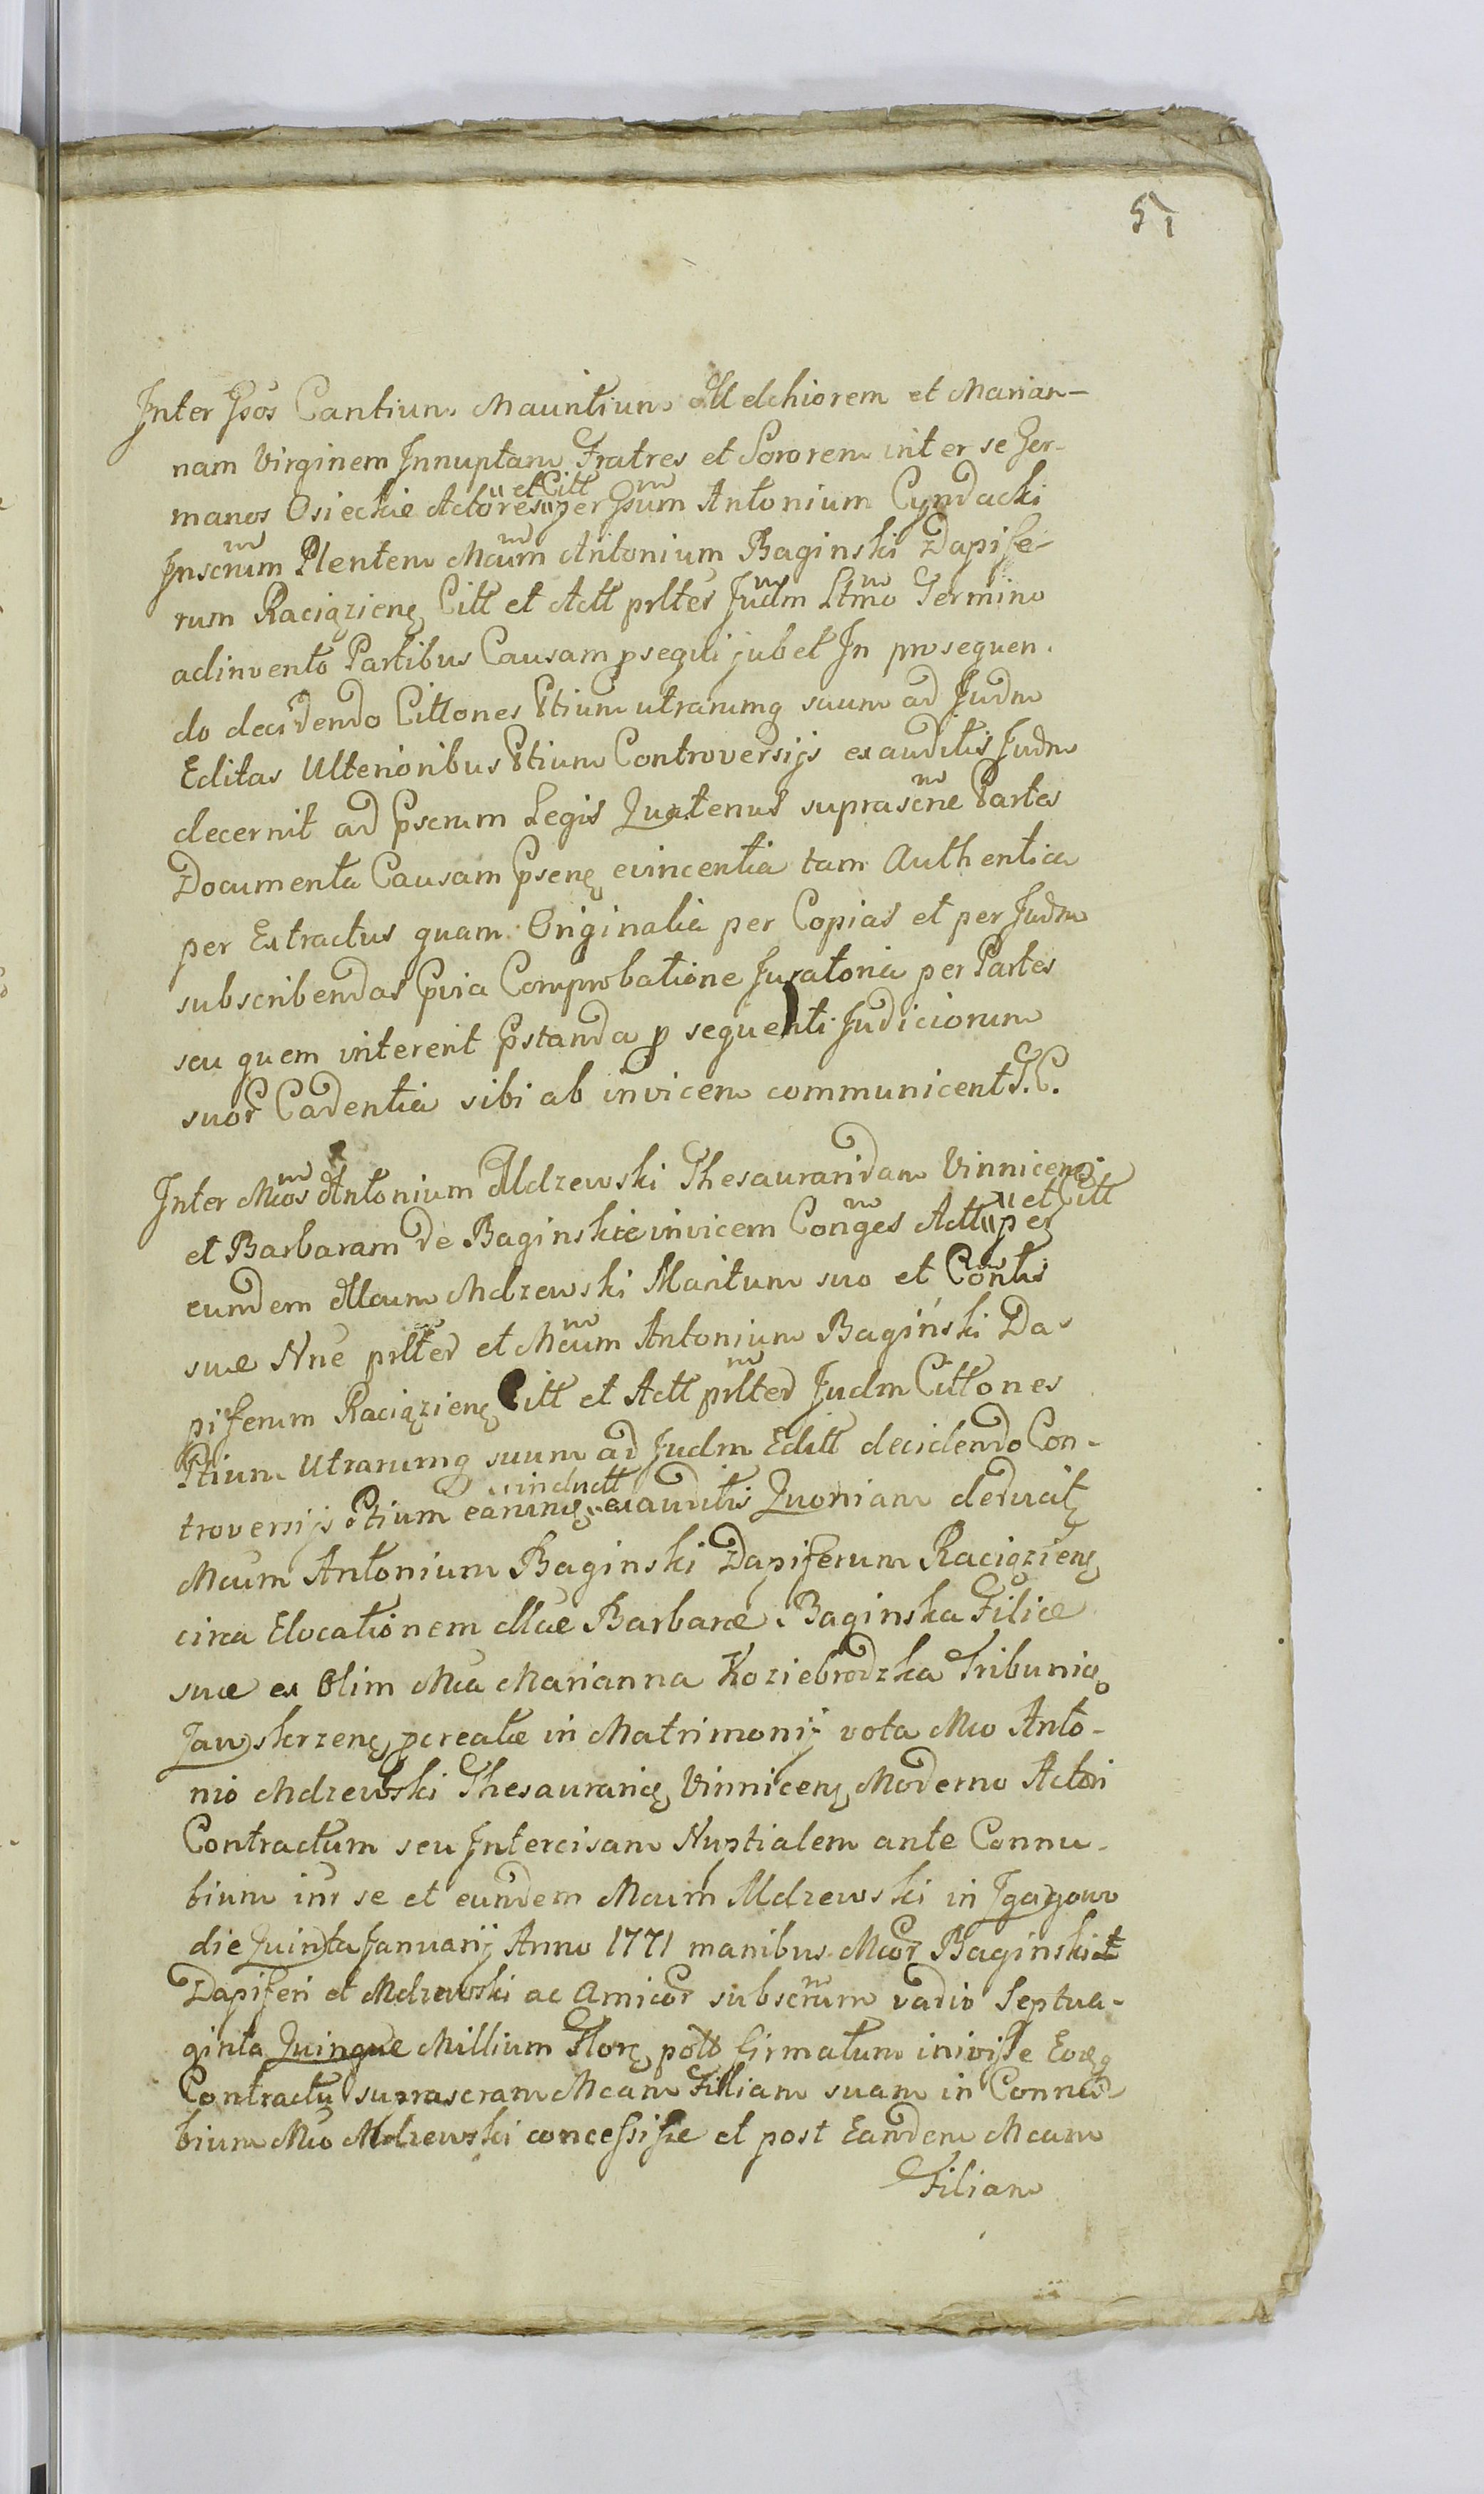 51
Inter Gsos Cantium Mauritium Melchiorem et Marian-
nam Virginem Innuptam Fratres et Sororem inter se Ger-
manos Osieckie Actores et Citt per Gsum Antonium Cyndacki
Inscrum Plentem Mcum Antonium Baginski Dapife-
rum Raciązieñ Citt et Actt prltes Judm Ltmo Termino
adinvento Partibus Causam psequi jubet In prosequen-
do decidendo Cittones Ptium utrarumq suum ad Judm
Editas Ulterioribus Ptium Controversijs exauditis Judm
decernit ad Pscrum Legis Quatenus suprascrne Partes
Documenta Causam Psenę evincentia tam Authentica
per Extractus quam Originalia per Copias et per Judm
subscribendas Pvia Comprobatione Juratoria per Partes
seu quem intererit Pstanda p sequenti Judiciorum
suor Cadentia sibi ab invicem communicent S.C.
Inter Mcos Antonium Mdzewski Thesauraridam Vinnicenę
et Barbaram de Baginskie invicem Conges Actt et Citt per
eundem Mcum Mdzewski Maritum suo et Contis
suæ Nne prltes et Mcum Antonium Bagiński Da-
piferum Raciązienę Citt et Actt prltes Judm Cittones
Ptium Utrarumq suum ad Judm Editt decidendo Con-
troversijs Ptium earumq induectt exauditis Quoniam deducitę
Mcum Antonium Baginski Dapiferum Raciązienę
circa Elocationem Mcæ Barbaræ Baginska Filiæ
suæ ex Olim Mca Marianna Koziebrodzka Tribunię
Zawskrzenę pcreatæ in Matrimonij vota Mco Anto-
nio Mdzewski Thesaurarię Vinnicenę Moderno Actori
Contractum seu Intercisam Nuptialem ante Connu-
bium inr se et eundem Mcum Mdzewski in Zgagowo
die Quinta Januarij Anno 1771 manibus Mcor Baginski
Dapiferi et Mdzewski ac Amicor subscrum vadio Septua-
ginta Quinque Millium Flor pol firmatum inivisse Eoq
Contractu suprascram Mcam Filliam suam in Connu-
bium Mco Mdzewski concessisse et post Eandem Mcam
Filiam